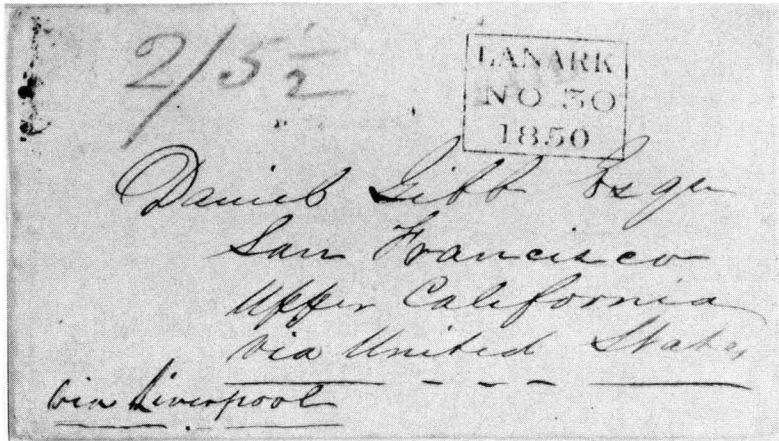 2/5½
LANARK
NO 30
1850
Daniel Gibb Esqr
San Francisco
Upper California
via United States
via Liverpool